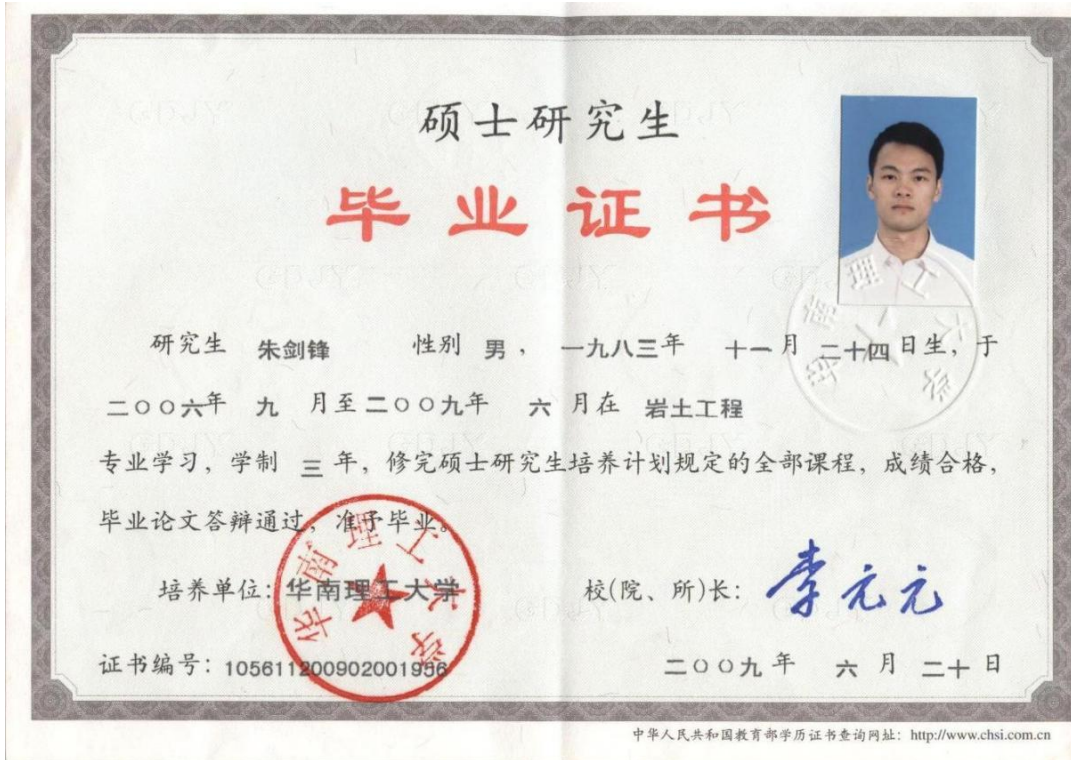 硕士研究生
毕业证书
研究生 朱剑锋 性别 男， 一九八三年 十一月 二十四日生，于
二○○六年 九 月至二○○九年 六 月在 岩土工程
专业学习，学制 三 年，修完硕士研究生培养计划规定的全部课程，成绩合格，
毕业论文答辩通过，准予毕业。
培养单位：华南理工大学
校(院、所)长：李元元
证书编号：105611200902001936
二○○九年 六 月 二十 日
华南理工大学
华南理工大学
中华人民共和国教育部学历证书查询网址：http://www.chsi.com.cn